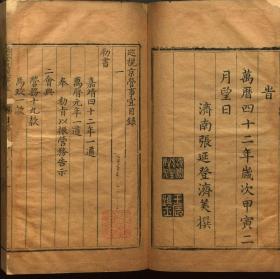 旹
萬曆四十二年歲次甲寅二
月望日
濟南張延登濟美撰
巡視京營事宜目錄
一
勅書
嘉靖四十二年一道
萬曆元年一道
奉 勅旨以振營務告示
二會典
營務十九款
馬政一款